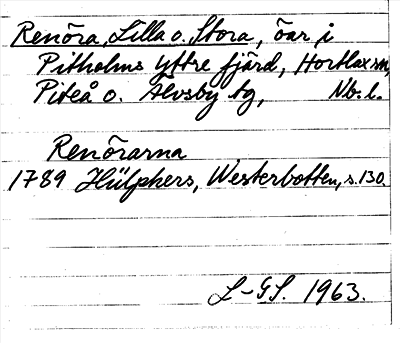 Renöra, Lilla o. Stora, öar i
Pitholms yttre fjärd, Hortlax sn,
Piteå o. Älvsby tg, Nb. l.
Renörarna
1789 Hülphers, Westerbotten, s. 130.
L-GS. 1963.